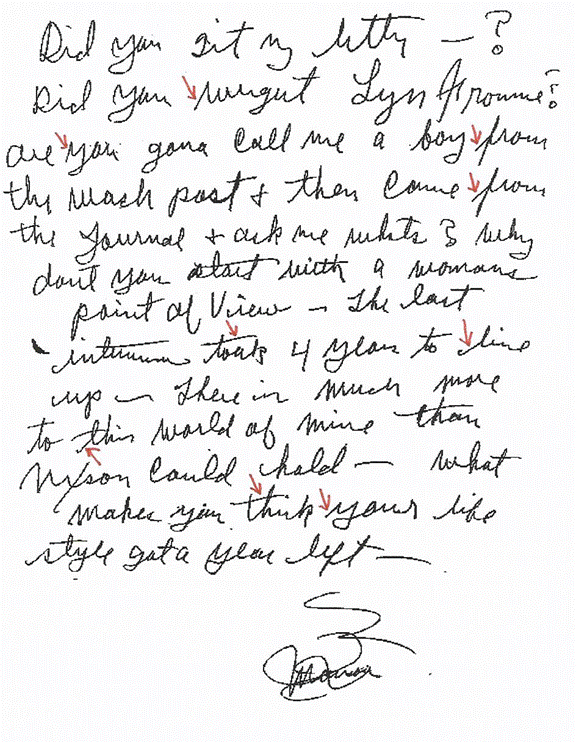 Did you git my letty — ?
Did you Lyn Fromme?
are you gona call me a boy from
the wash post & then come from
the Journal & ask me whats & why
dont you start with a womans
point of View — The last
took 4 years to line
up — There is much more
to this world of mine than
Nixson could hold — what
makes you think your life
style got a year left —